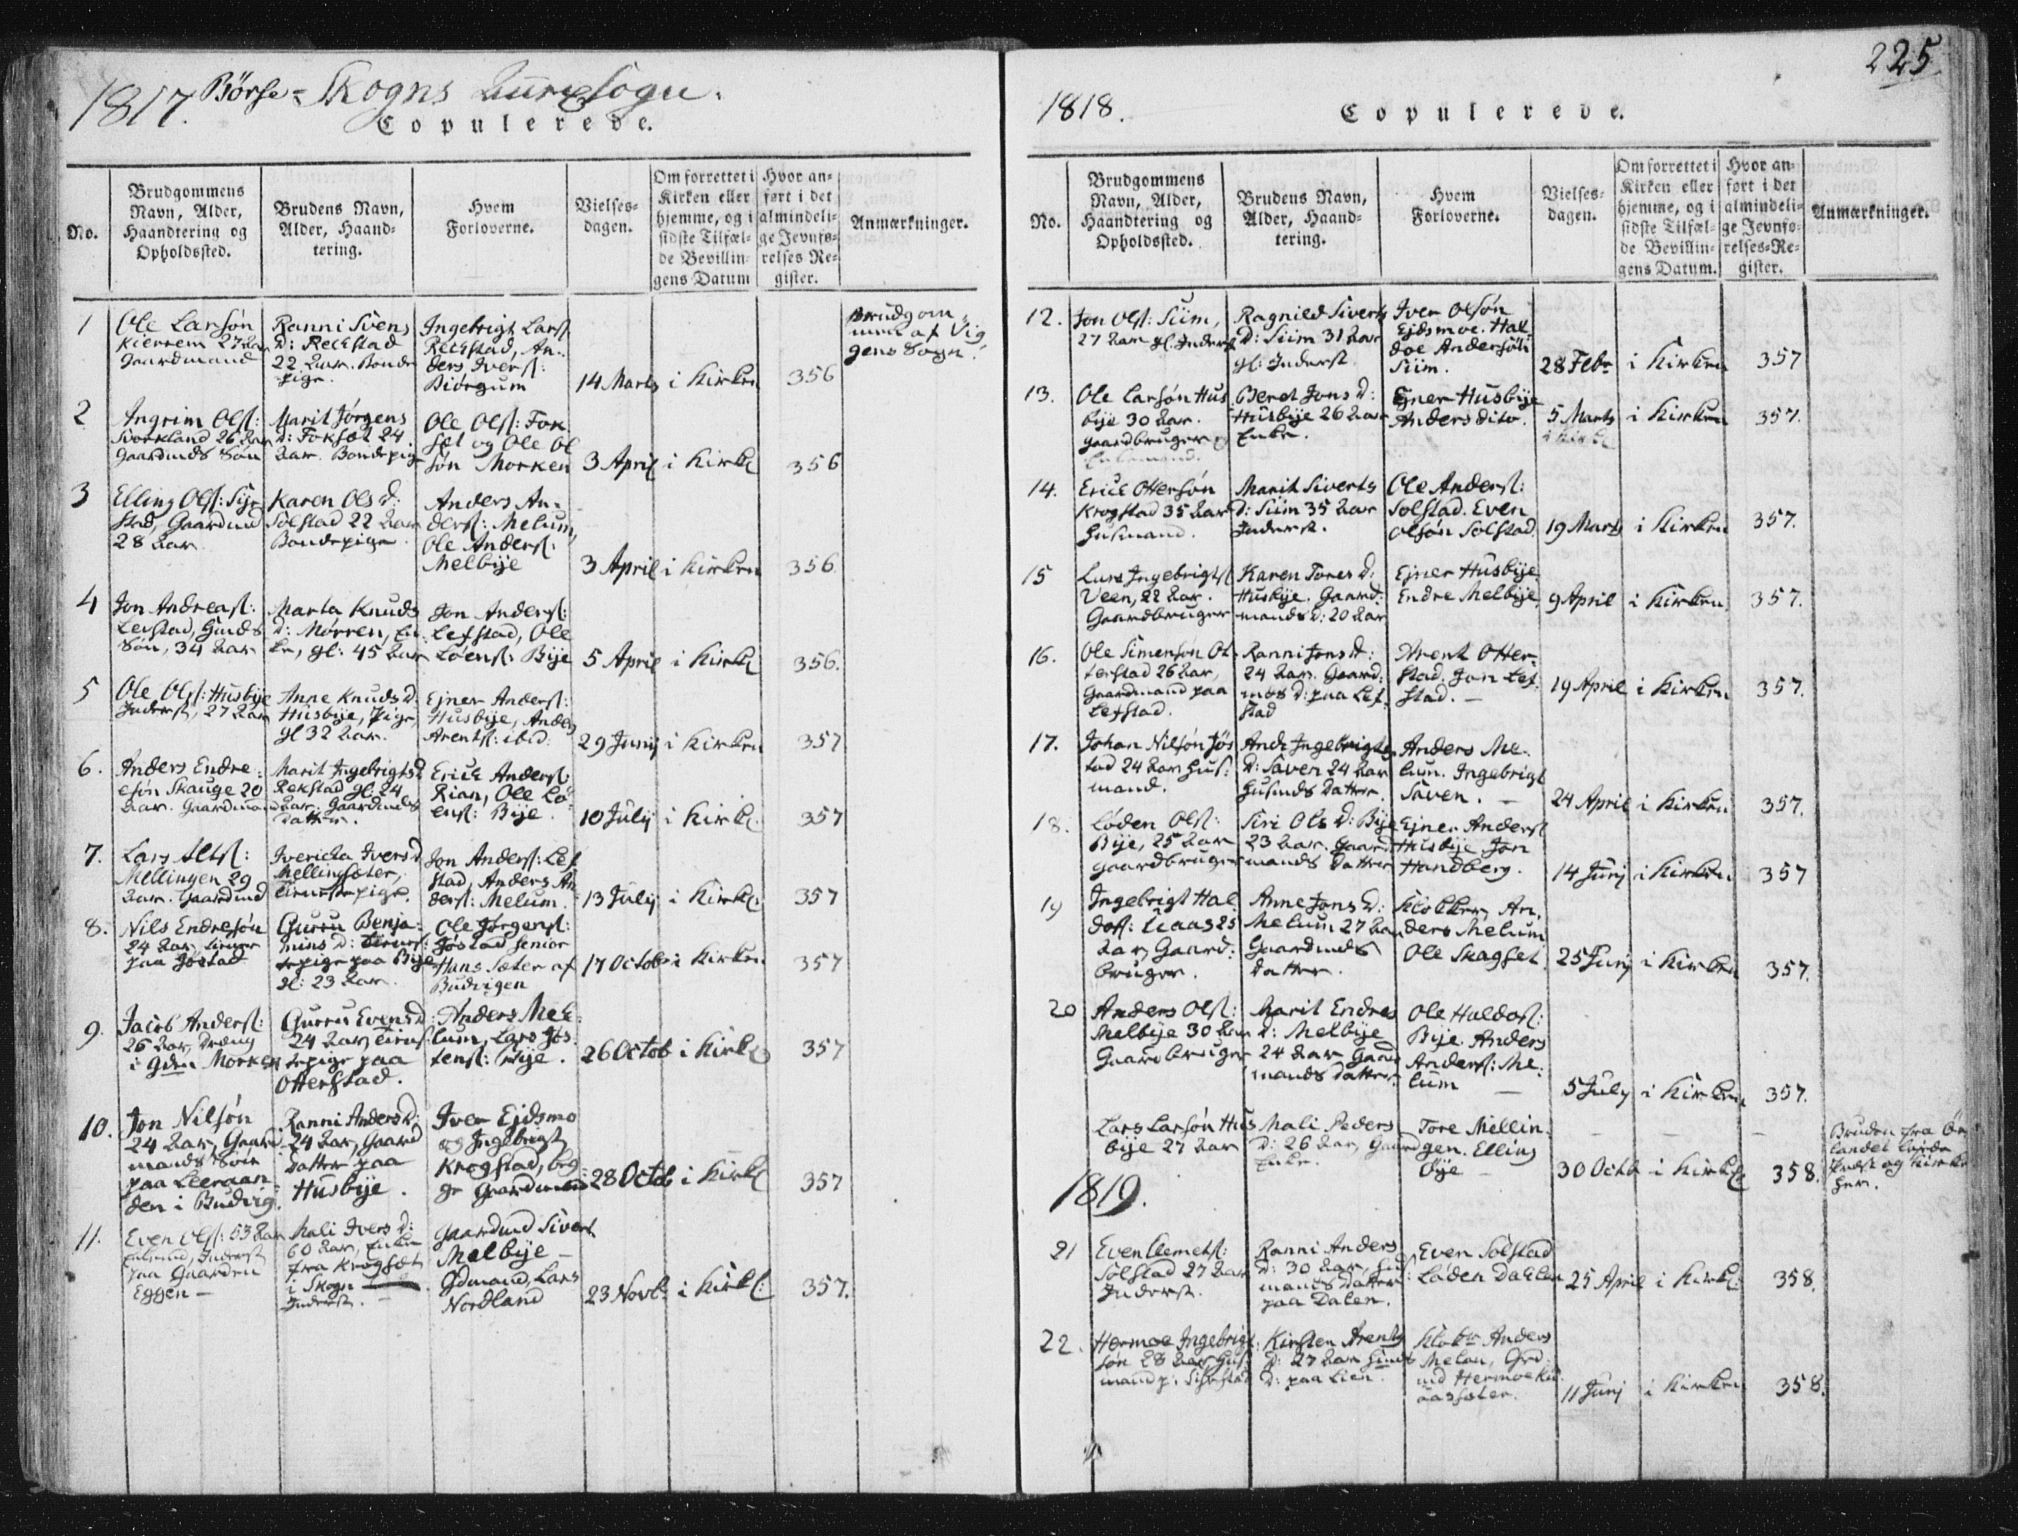 1817. Børse-Skogns Annexsogn.
Copulerede.
No.
Brudgommens
Navn, Alder,
Haandtering og
Opholdssted.
Brudens Navn,
Alder, Haand-
tering.
Hvem
Forloverne.
Vielses-
dagen.
Om forrettet i
Kirken eller
hjemme, og i
sidste Tilfæl-
de Bevillin-
gens Datum
Hvor an-
ført i det
almindeli-
ge Jevnfø-
relses Re-
gister.
Anmærkninger.
1
Ole Larsøn
Kierrem 27 Aar
Gaardmand
Ranni Svens
D: Rekstad
22 Aar. Bonde
pige.
Ingebrigt Lars:
Rekstad, An-
ders Ivers:
Biørgum
14 Marts
i Kirken
356
Brudgom-
men af Vig
gens Sogn!
2
Ingrim Ols:
Sworkland 26 Aar
Gaardmds Søn
Marit Jørgens
D: Foksæt 24
Aar. Bondepige
Ole Ols: Fok
set og Ole Ol
søn Morken
3 April
i Kirk:
356
3
Elling Ols: Sije
stad, Gaardmd
28 Aar.
Karen Ols D:
Solstad 22 Aar
Bondepige.
Anders An-
ders: Melum,
Ole Anders:
Melbije
3 April
i Kirken
356
4
Jon Andreas:
Lefstad, Gmds
Søn, 34 Aar
Marta Knuds
D: Mørren, En-
ke, gl: 45 Aar
Jon Anders:
Lefstad, Ole
Løens: Bije
5 April
i Kirk:
356.
5
Ole Ols: Husbije
Inderst, 27 Aar
Anne Knuds D:
Husbije, Pige
gl 32 Aar.
Ejner Anders:
Husbije, Anders
Arents: ibid:
29 Junij
i Kirken
357
6.
Anders Endre-
søn Skauge 20
Aar. Gaardmand
Marit Ingebrigts D
Rekstad gl: 24
Aar. Gaardmds
Datter.
Erick Anders:
Rian, Ole Lø-
ens: Bije.
10 Julij
i Kirk:
357
7.
Lars Alts:
Mellingen 29
Aar. Gaardmd
Ivericka Ivers D
Mellingsæter,
tienestepige.
Jon Anders: Lef
stad, Anders An
ders: Melum.
13 Julij
i Kirk:
357
8.
Nils Endresøn
24 Aar,
paa Jøstad
Gurru Benja-
mins D: tienes-
tepige paa Bije
gl: 23 Aar.
Ole Jørgens:
Jøstad senior
Hans Sæter af
Budvigen
17 Octob
i Kirken
357
9.
Jacob Anders:
26 Aar, dreng
i Gden Morken
Gurru Evens D:
24 Aar, tienes-
tepige paa
Otterstad.
Anders Mek
lum, Lars Jos
tens: Bije.
26 Octob
i Kirk:
357
10.
Jon Nilsøn
24 Aar, Gaard
mands Søn
paa Leeraan
den i Budvig.
Ranni Anders D:
24 Aar, Gaard
Datter paa
Husbije.
Iver Ejdsmo
og Ingebrigt
Krogstad, beg
ge Gaardmænd
28 Octob
i Kirk:
357
11.
Even Ols: 53 Aar
Enkmd, Inderst
paa Gaarden
Eggen -
Mali Ivers D:
60 Aar, Enke
fra Krogsæt
i Skogn
Inderst. -
Gaardmd Sivert
Melbije -
Gdmand, Lars
Nordland
23 Novbr
i Kirk:
357.
225.
1818.
Copulerede.
No.
Brudgommens
Navn, Alder,
Haandtering og
Opholdssted.
Brudens Navn,
Alder, Haand-
tering.
Hvem
Forloverne.
Vielses-
dagen.
Om forrettet i
Kirken eller
hjemme, og i
sidste Tilfæl-
de Bevillin-
gens Datum.
Hvor an-
ført i det
almindeli-
ge Jevnfø-
relses-Re-
gister.
Anmærkninger.
12.
Jon Ols: Siim,
27 Aar gl. Inderst
Ragnild Siverts
D: Siim 31 Aar
gl: Inderst
Iver Olsøn
Ejdsmoe. Hal
doe Andersøn
Siim.
28 Febr
i Kirken
357
13.
Ole Larsøn Hus
bije 30 Aar.
Gaardbruger
Enkemand.
Beret Jons D:
Husbije 26 Aar
Enke.
Ejner Husbije
Anders dito.
5 Marts
i Kirk:
i Kirken
357.
14.
Erick Ottersøn
Krogstad 35 Aar
Husmand.
Marit Siverts
D: Siim 35 Aar
Inderst.
Ole Anders:
Solstad. Even
Olsøn Solstad
19 Marts
i Kirken
357.
15
Lars Ingebrigts:
Veen, 22 Aar.
Gaardbruger
Karen Tores D:
Husbije. Gaard-
mands D: 20 Aar
Ejner Husbije
Endre Melbije,
9 April
i Kirken
357.
16.
Ole Simensøn Ot
terstad 26 Aar,
Gaardmand paa
Lefstad.
Ranni Jons D:
24 Aar. Gaard-
mds D: paa Lef-
stad
Arent Otter-
stad, Jon Lef
stad. -
19 April
i Kirken
357.
17.
Johan Nilsøn Jøs
tad 24 Aar Hus-
mand.
Ane Ingebrigts
D: Saven 24 Aar
Husmds Datter
Anders Me-
lum. Ingebrigt
Saven. -
24 April
i Kirken
357.
18.
Løden Ols:
Bije, 25 Aar
Gaardbruger
Siri Ols D: Bije
23 Aar. Gaard
mands Datter
Ejner Anders
Husbije, Jon
Handberg.
14 Junj
i Kirken
357
19
Ingebrigt Hal
dos: 25
Aar, Gaard-
bruger.
Anne Jons D:
Melum 27 Aar
Gaardmds
Datter.
Klokker, An-
ders Melum
Ole Skagset.
25 Junj
i Kirken
357.
20
Anders Ols:
Melbije 30 Aar
Gaardbruger
Marit Endres
D: Melbije
24 Aar Gaard
mands Datter
Ole Haldos:
Bije Anders
Anders: Me-
lum -
5 July
i Kirken
357.
Lars Larsøn Hus
bije 27 Aar
Mali Peders
D: 26 Aar, Gaard
Enke.
Tore Mellin-
gen. Elling
Øye -
30 Octb
i Kirk:
358.
Bruden fra Ør
landet
Præst og Kirke
her.
1819.
21
Even Clemets:
Solstad 27 Aar
Inderst.
Ranni Anders
D: 30 Aar, Hus
mands Datter
paa Dalen.
Even Solstad
Løden Dahlen
25 April
i Kirk:
358.
22.
Hermoe Ingebrigt
søn 28 Aar, Hus-
mand p: Sijestad
Kirsten Arents
D: 27 Aar Hmds
D: paa Lien.
Klokr Anders
Melan, Grd
md Hermoe Ku
aassæter.
11 Junj
i Kirken
358.